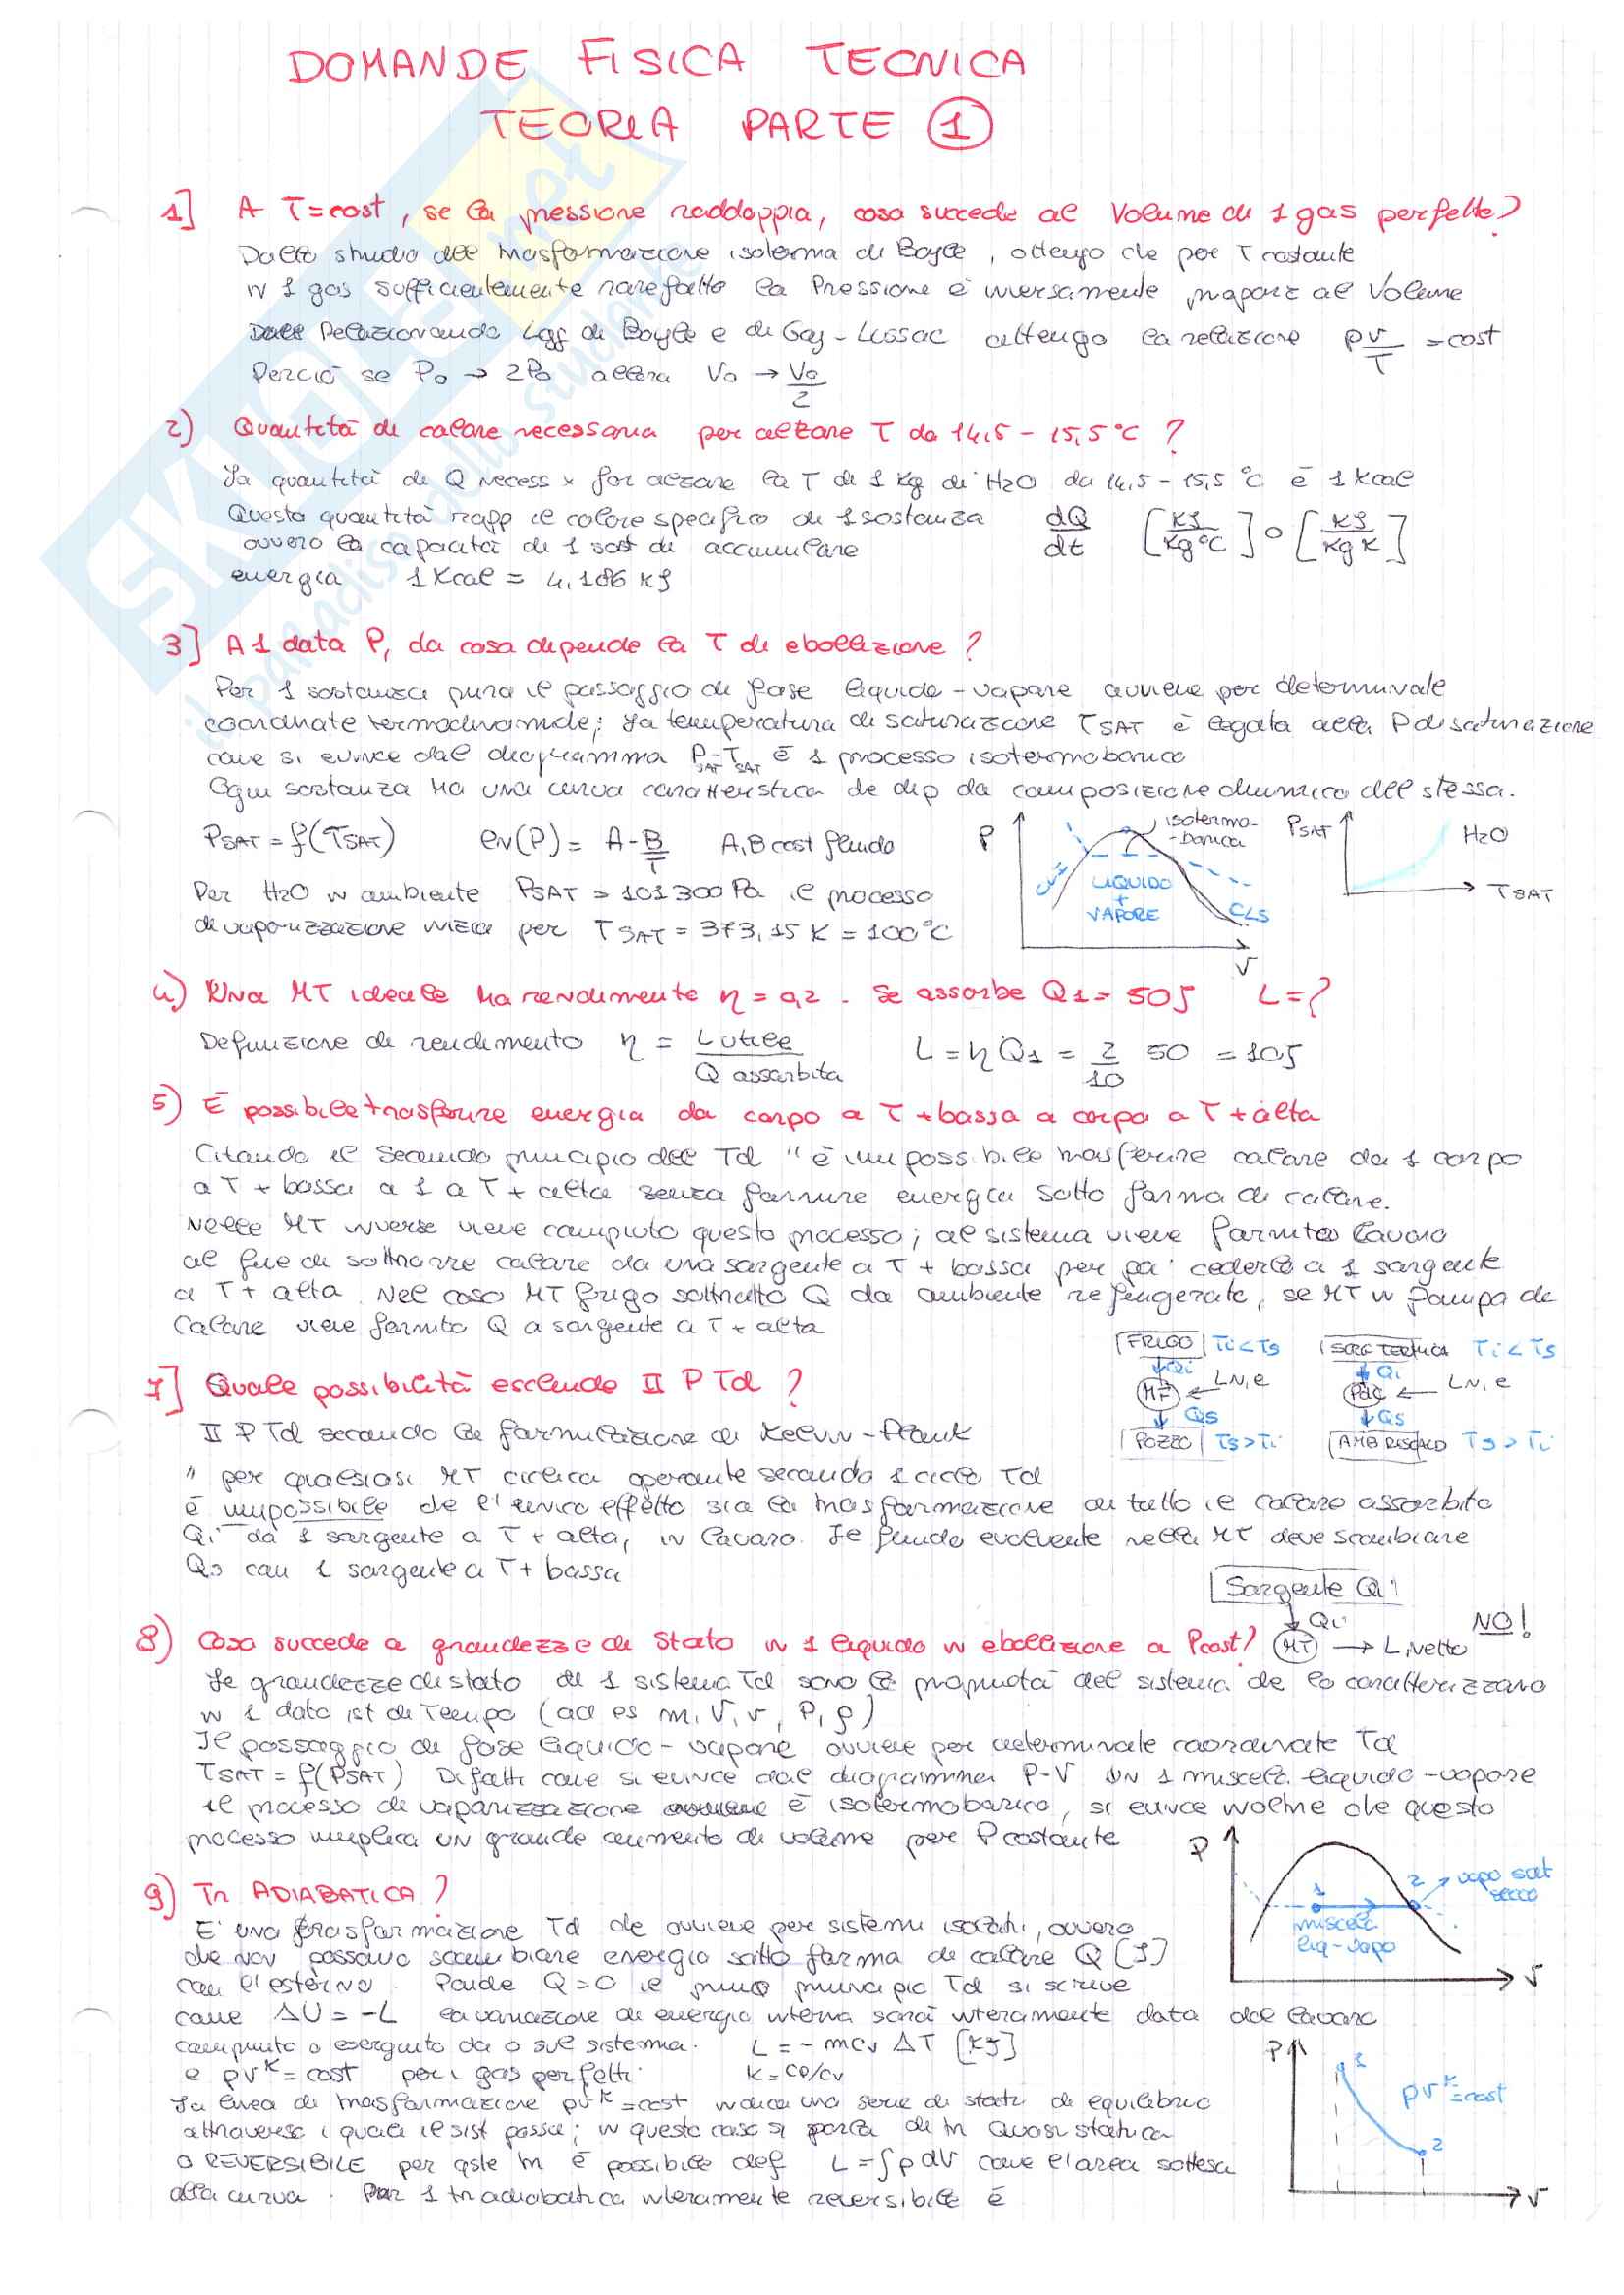 DOMANDE FISICA TECNICA
TEORIA PARTE 1
1] A T=cost, se la pressione raddoppia, cosa succede al Volume di 1 gas perfetto?
Dallo studio dell trasformazione isoterma di Boyle, ottengo che per T costante
in 1 gas sufficientemente rarefatto la Pressione è inversamente proporz al Volume
Relazionando Lgg di Boyle e di Gay-Lussac ottengo la relazione pv/T = cost
Perciò se P0 → 2P0 allora V0 → V0/2
2) Quantità di calore necessaria per alzare T da 14,5 - 15,5 °C ?
La quantità di Q necess x far alzare la T di 1 Kg di H2O da 14,5 - 15,5 °C è 1 kcal
Questa quantità rapp il calore specifico di 1 sostanza dQ/dt [KJ/Kg°C] o [KJ/Kg K]
ovvero la capacità di 1 sost di accumulare
energia 1 Kcal = 4,186 KJ
3] A 1 data P, da cosa dipende la T di ebollizione ?
Per 1 sostanza pura il passaggio di fase liquido-vapore avviene per determinate
coordinate termodinamiche; la temperatura di saturazione TSAT è legata alla P di saturazione
come si evince dal diagramma PSAT-TSAT È 1 processo isotermobarico
Ogni sostanza ha una curva caratteristica che dip da composizione chimica dell stessa.
PSAT = f(TSAT) ln(P) = A - B/T A,B cost fluido
Per H2O in ambiente PSAT = 101300 Pa il processo
di vaporizzazione inizia per TSAT = 373,15 K = 100°C
P
isotermo-
-barica
LIQUIDO
+
VAPORE
CLS
V
PSAT
H2O
TSAT
4) Una MT ideale ha rendimento η = 0,2 . Se assorbe Q1 = 50J L = ?
Definizione di rendimento η = L utile / Q assorbita L = η Q1 = 2/10 50 = 10J
5) È possibile trasferire energia da corpo a T + bassa a corpo a T + alta
Citando il Secondo principio dell Td " è impossibile trasferire calore da 1 corpo
a T + bassa a 1 a T + alta senza fornire energia sotto forma di calore.
Nelle MT inverse viene compiuto questo processo; al sistema viene fornito lavoro
al fine di sottrarre calore da una sorgente a T + bassa per poi cederlo a 1 sorgente
a T + alta. Nel caso MT frigo sottratto Q da ambiente refrigerato, se MT in pompa di
Calore viene fornito Q a sorgente a T + alta
FRIGO Ti<Ts
Qi
MF ← LN,e
Qs
POZZO Ts>Ti
SORG TERMICA Ti<Ts
Qi
PdC ← LN,e
Qs
AMB RISCALD Ts>Ti
7] Quale possibilità esclude II P Td ?
II P Td secondo la formulazione di Kelvin-Plank
" per qualsiasi MT ciclica operante secondo 1 ciclo Td
è impossibile che l'unico effetto sia la trasformazione di tutto il calore assorbito
Qi da 1 sorgente a T + alta, in lavoro. Il fluido evolvente nella MT deve scambiare
Qs con 1 sorgente a T + bassa
Sorgente Qi
Qi
MT → L,netto NO!
8) Cosa succede a grandezze di Stato in 1 liquido in ebollizione a Pcost?
Le grandezze di stato di 1 sistema Td sono le proprietà del sistema che lo caratterizzano
in 1 dato ist di Tempo (ad es m, V, v, P, ρ)
Il passaggio di fase liquido-vapore avviene per determinate coordinate Td
TSAT = f(PSAT) Difatti come si evince dal diagramma P-V in 1 miscela liquido-vapore
il processo di vaporizzazione è isotermobarico, si evince inoltre che questo
processo implica un grande aumento di volume per P costante
P
1
2
vapo sat
secco
miscela
liq-vapo
V
9) Tr ADIABATICA ?
È una trasformazione Td che avviene per sistemi isolati, ovvero
che non possono scambiare energia sotto forma di calore Q [J]
con l'esterno. Poiché Q=0 il primo principio Td si scrive
come ΔU = -L la variazione di energia interna sarà interamente data dal lavoro
compiuto o eseguito da o sul sistema. L = - mcv ΔT [KJ]
e pv^K = cost per i gas perfetti. K = cp/cv
La linea di trasformazione pv^K = cost indica una serie di stati di equilibrio
attraverso i quali il sist passa; in questo caso si parla di tr Quasi statica
o REVERSIBILE per qste tr è possibile def L = ∫p dV come l'area sottesa
alla curva. Per 1 tr adiabatica interamente reversibile è
P
1
pv^K = cost
2
V
SKUOLA.net
il paradiso dello studente